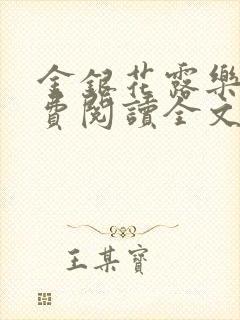 金銀花露樂
費閱讀全文
王某寶